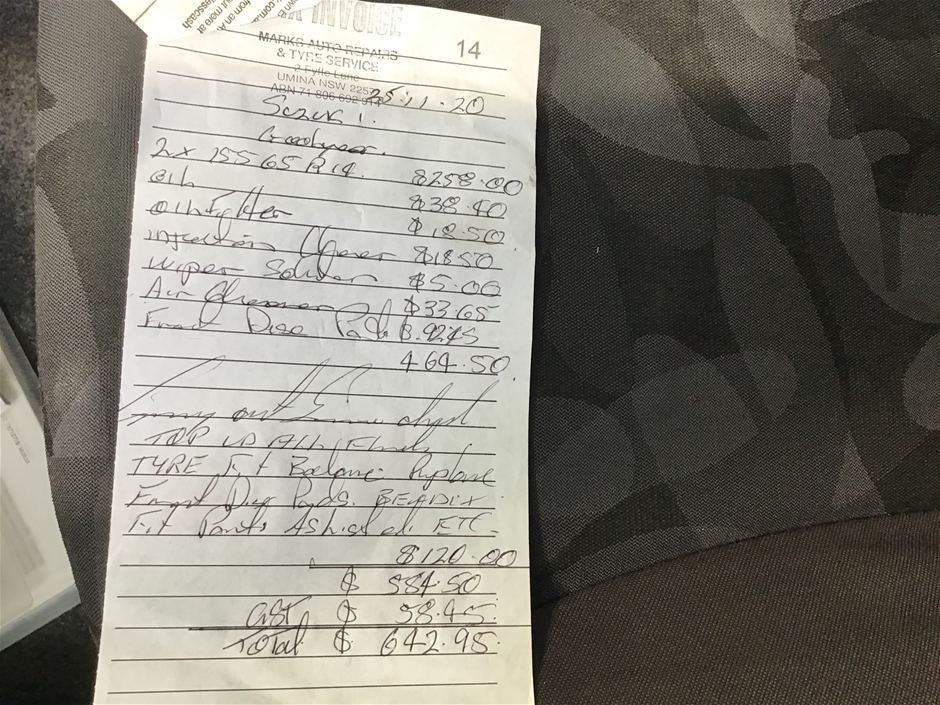 INVOICE
14
MARKS AUTO REPAIRS
& TYRE SERVICE
Fylfe Lane
UMINA NSW 2257
ABN 71 806 692
25.11.20
Suzuki.
Goodyear.
2x 155 65 R14. $258.00
oil $38.40
oil Filter $18.50
Injection Cleaner $18.50
Wiper $5.00
Air $33.65
Front Disc Pads 92.45
464.50
Carry out
TOP UP All Fluids
TYRE Fit Balance Replace
Front Disc Pads. BENDIX
Fit Parts As listed. ETC-
$120.00
$ 584.50
GST $ 58.45
TOTAL $ 642.95